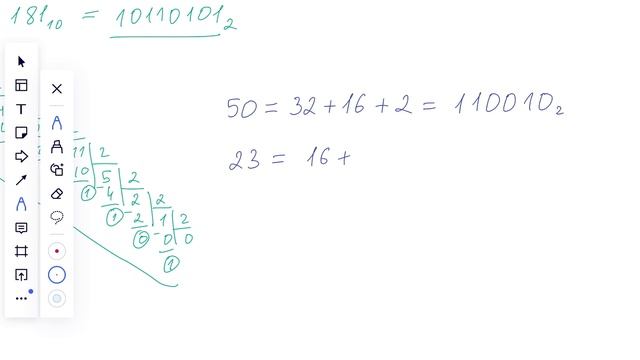 181₁₀ = 10110101₂
50 = 32 + 16 + 2 = 110010₂
23 = 16 +
11 2
10 5 2
1 4 2 2
1 2 1 2
0 0 0
1
T
A
A